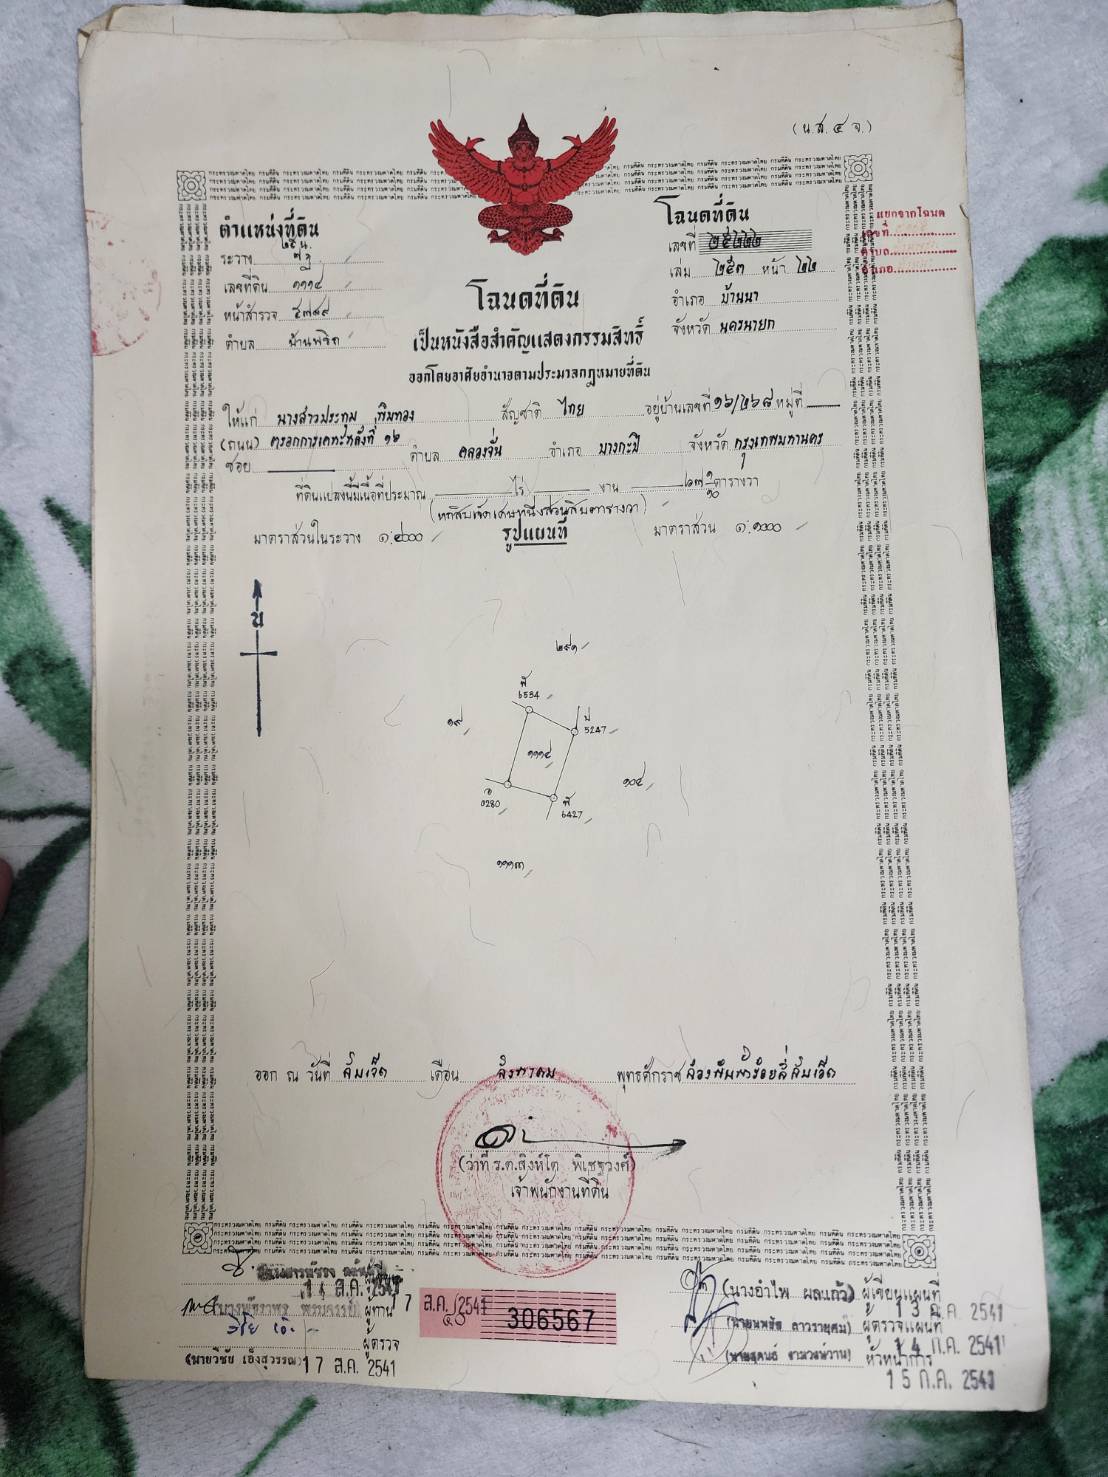 (น.ส. ๔ จ.)
ตำแหน่งที่ดิน
ระวาง
เลขที่ดิน ๑๑๑๔
หน้าสำรวจ
ตำบล บ้านพริก
โฉนดที่ดิน
เลขที่ ๒๕๒๒๒
เล่ม ๒๕๓ หน้า ๒๒
อำเภอ บ้านนา
จังหวัด นครนายก
แยกจากโฉนด
เลขที่
ตำบล
อำเภอ
โฉนดที่ดิน
เป็นหนังสือสำคัญแสดงกรรมสิทธิ์
ออกโดยอาศัยอำนาจตามประมวลกฎหมายที่ดิน
ให้แก่ นางสาวประทุม พิมทอง สัญชาติ ไทย อยู่บ้านเลขที่ ๑๖/๒๖๘ หมู่ที่
(ถนน) ตรอกการเคหะหลังที่ ๑๖ ตำบล คลองจั่น อำเภอ บางกะปิ จังหวัด กรุงเทพมหานคร
ซอย
ที่ดินแปลงนี้มีเนื้อที่ประมาณ ไร่ งาน ๖๗ ๑/๑๐ ตารางวา
(หกสิบเจ็ดเศษหนึ่งส่วนสิบตารางวา)
มาตราส่วนในระวาง ๑:๔๐๐๐ รูปแผนที่ มาตราส่วน ๑:๑๐๐๐
น
๒๕๑
6534
๑๙
5247
๑๑๑๔
๑๐๔
0280
6427
๑๑๑๓
ออก ณ วันที่ สิบเจ็ด เดือน สิงหาคม พุทธศักราช สองพันห้าร้อยสี่สิบเอ็ด
(ว่าที่ ร.ต.สิงห์โต พิเชฐวงศ์)
เจ้าพนักงานที่ดิน
17 ส.ค. 2541
ผู้ทาน 17 ส.ค. 2541
ผู้ตรวจ
(นายวิชัย เอ็งสุวรรณ) 17 ส.ค. 2541
306567
(นางอำไพ ผลแก้ว) ผู้เขียนแผนที่
13 ก.ค. 2541
ผู้ตรวจแผนที่
14 ก.ค. 2541
หัวหน้าการ
15 ก.ค. 2541